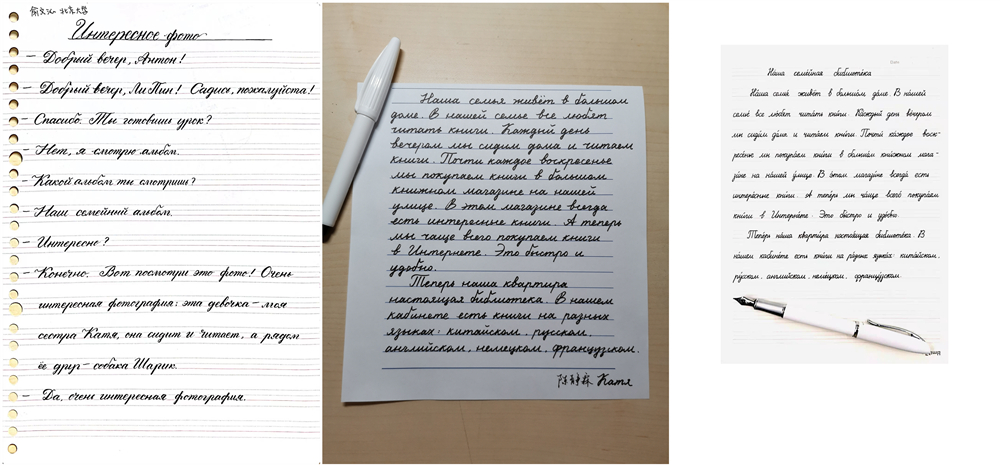 俞文泓 北京大学
Интересное фото
– Добрый вечер, Антон!
– Добрый вечер, Ли Пин! Садись, пожалуйста!
– Спасибо. Ты готовишь урок?
– Нет, я смотрю альбом.
– Какой альбом ты смотришь?
– Наш семейный альбом.
– Интересно?
– Конечно. Вот посмотри это фото! Очень
интересная фотография: эта девочка – моя
сестра Катя, она сидит и читает, а рядом
её друг – собака Шарик.
– Да, очень интересная фотография.
Наша семья живёт в большом
доме. В нашей семье все любят
читать книги. Каждый день
вечером мы сидим дома и читаем
книги. Почти каждое воскресенье
мы покупаем книги в большом
книжном магазине на нашей
улице. В этом магазине всегда
есть интересные книги. А теперь
мы чаще всего покупаем книги
в Интернете. Это быстро и
удобно.
Теперь наша квартира
настоящая библиотека. В нашем
кабинете есть книги на разных
языках: китайском, русском,
английском, немецком, французском.
Катя
Наша семейная библиоте́ка
Наша семья́ живёт в большо́м до́ме. В нашей
семье́ все лю́бят чита́ть кни́ги. Ка́ждый день ве́чером
мы сиди́м до́ма и чита́ем кни́ги. Почти́ ка́ждое воск-
ресе́нье мы покупа́ем кни́ги в большо́м кни́жном мага-
зи́не на на́шей у́лице. В э́том магази́не всегда́ есть
интере́сные кни́ги. А тепе́рь мы ча́ще всего́ покупа́ем
кни́ги в Интерне́те. Э́то бы́стро и удо́бно.
Тепе́рь на́ша кварти́ра настоя́щая библиоте́ка. В
на́шем кабине́те есть кни́ги на ра́зных языка́х: кита́йском,
ру́сском, англи́йском, неме́цком, францу́зском.